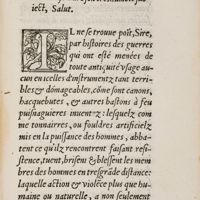 iect, Salut.
IL ne se trouue poīt, Sire,
par histoires des guerres
qui ont esté menées de
toute antiquité vsage au-
cun en icelles d'instrumentz tant terri-
bles, & dōmageables, cōme sont canons,
hacquebutes, & autres bastons à feu
puisnaguieres inuentéz: lesquelz com
me tonnoirres, ou fouldres artificielz
mis en la puissance des hommes, abba-
tent ce qu'ilz rencontrent faisant resi-
stence, tuent, brisent & blessent les mem
bres des hommes en tresgrāde distāce:
laquelle action & violēce plus que hu-
maine ou naturelle, a non seulement